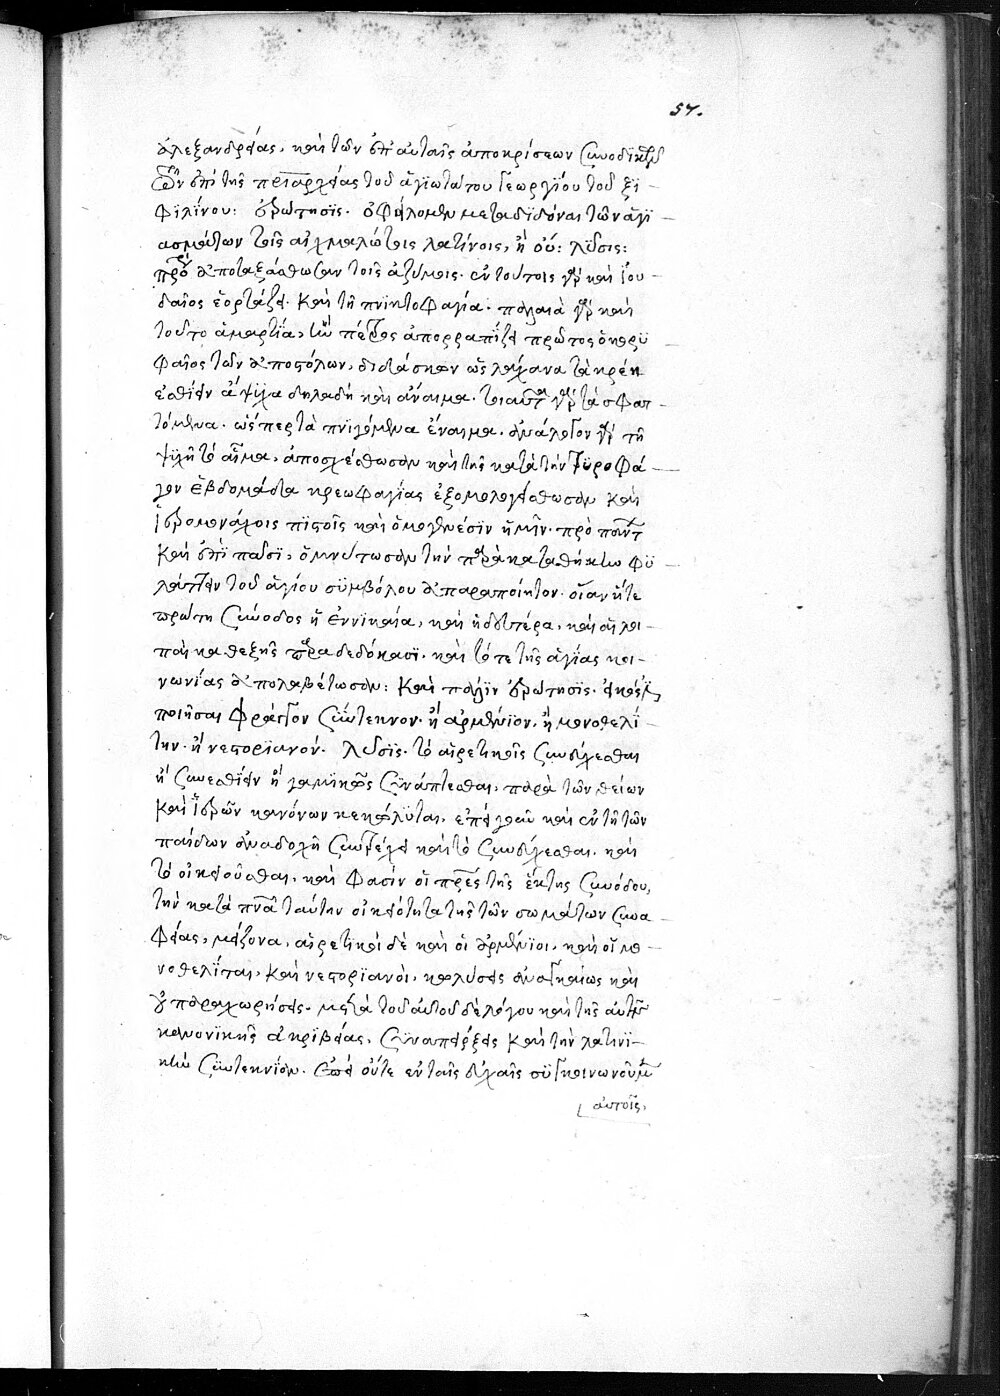 57.
ἀλεξανδρείας, καὶ τῶν ἐπ' αὐταῖς ἀποκρίσεων συνοδικῶν
ἐπὶ τῆς πριαρχείας τοῦ ἁγιωτάτου Γεωργίου τοῦ ξι
φιλίνου: ἐρώτησις. ὀφείλομεν μεταδιδόναι τῶν ἁγι
ασμάτων τοῖς αἰχμαλώτοις λατίνοις, ἢ οὔ: λύσις:
ἀποταξάσθωσαν τοῖς ἀζύμοις. ἐν τούτοις γὰρ καὶ ἰου
δαῖος ἑορτάζει. καὶ τῇ πνικτοφαγία. παλαιὰ γὰρ καὶ
τοῦτο ἁμαρτία, ἣν πέτρος ἀπορραπίζει πρῶτος ὁ κορυ
φαῖος τῶν ἀποστόλων, διδάσκων ὡς λάχανα τὰ κρέη
ἐσθίειν ἄψυχα δηλαδὴ καὶ ἄναιμα. τοιαῦτα γὰρ τὰ σφατ
τόμενα. ὥσπερ τὰ πνιγόμενα ἔναιμα. ἀνάλογον γὰρ τῇ
ψυχῇ τὸ αἷμα, ἀποσχέσθωσαν καὶ τῆς κατὰ τὴν τυροφά
γον ἑβδομάδα κρεωφαγίας ἐξομολογείσθωσαν καὶ
ἱερομονάχοις πιστοῖς καὶ ὁμογενέσιν ἡμῖν. πρὸ πάντων
καὶ ἐπὶ πᾶσι, ὀμνύτωσαν τὴν παρακαταθήκην φυ
λάττειν τοῦ ἁγίου συμβόλου ἀπαραποίητον. οἵαν ἥτε
πρώτη σύνοδος ἡ ἐν νικαία, καὶ ἡ δευτέρα, καὶ αἱ λοι
παὶ καθεξῆς παραδεδώκασι. καὶ τότε τῆς ἁγίας κοι
νωνίας ἀπολαβέτωσαν: καὶ πάλιν ἐρώτησις.
ποιῆσαι φράγγον σύντεκνον. ἢ ἀρμένιον, ἢ μονοθελί
την. ἢ νεστοριανόν. λύσις. τὸ αἱρετικοῖς συνεύχεσθαι
ἢ συνεσθίειν ἢ γαμικῶς συνάπτεσθαι, παρὰ τῶν θείων
καὶ ἱερῶν κανόνων κεκώλυται, ἐπεὶ γοῦν καὶ ἐν τῇ τῶν
παίδων ἀναδοχῇ συντρέχει καὶ τὸ συνεύχεσθαι. καὶ
τὸ οἰκειοῦσθαι, καὶ φασὶν οἱ πρες τῆς ἕκτης συνόδου,
τὴν κατὰ πνα ταύτην οἰκειότητα τῆς τῶν σωμάτων συνα
φείας, μείζονα, αἱρετικοὶ δὲ καὶ οἱ ἀρμένιοι, καὶ οἱ μο
νοθελῖται, καὶ νεστοριανοὶ, κωλύσεις ἀναγκαίως καὶ
οὐ παραχωρήσεις. μετὰ τοῦ αὐτοῦ δὲ λόγου καὶ τῆς αὐτῆς
κανονικῆς ἀκριβείας, συναπείρξεις καὶ τὴν λατινι
κὴν συντεκνίαν. ἐπεὶ οὔτε ἐν ταῖς εὐχαῖς συγκοινωνοῦμεν
αὐτοῖς.